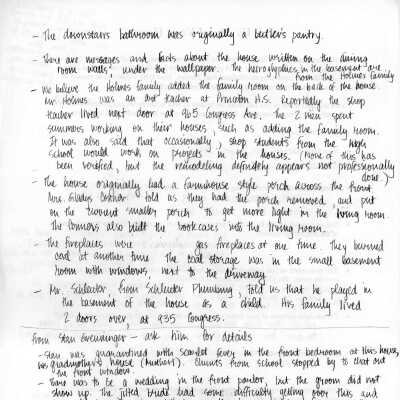 - The downstairs bathroom was originally a butler's pantry.
- There are messages and facts about the house written on the dining
room walls under the wallpaper. The hieroglyphics in the basement are
from the Holmes family
- We believe the Holmes family added the family room on the back of the house.
Mr. Holmes was an art teacher at Princeton H.S. Reportedly the shop
teacher lived next door at 965 Congress Ave. The 2 men spent
summers working on their houses, such as adding the family room.
It was also said that occasionally, shop students from the high
school would work on projects in the houses. (None of this has
been verified, but the remodeling definitely appears not professionally
done)
- The house originally had a farmhouse style porch across the front
Mrs. Gladys told us they had the porch removed, and put
on the current smaller porch to get more light in the living room.
The also built the bookcases into the living room.
- The fireplaces were gas fireplaces at one time. They burned
coal at another time. The coal storage was in the small basement
room with windows, next to the driveway.
- Mr. Schlueter from Schlueter Plumbing, told us that he played in
the basement of the house as a child. His family lived
2 doors over, at 935 Congress.
from Stan - ask him for details
- Stan was quarantined with scarlet fever in the front bedroom at this house,
was grandmother's house. from school stopped by to chat out
the front window.
- There was to be a wedding in the front parlor, but the groom did not
show up. The jilted bride had some difficulty getting over this and